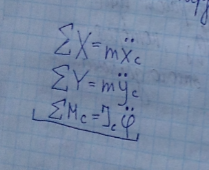 ∑X = mẍ_c
∑Y = mÿ_c
∑M_c = J_c φ̈